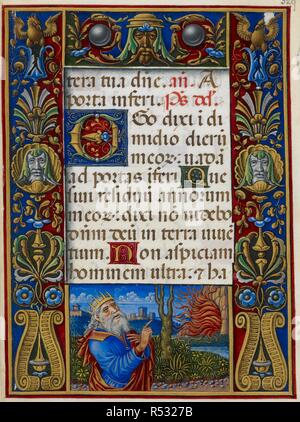 tera tua dñe. añ. A
porta inferi. Ps dd.
EGo dixi i di
midio dierũ
meorũ: uadã
ad portas iferi Que
siui residuũ annorum
meorũ: dixi nõ uidebo
dominũ deũ in terra uiuẽ
tium. Non aspiciam
hominem ultra. & ha